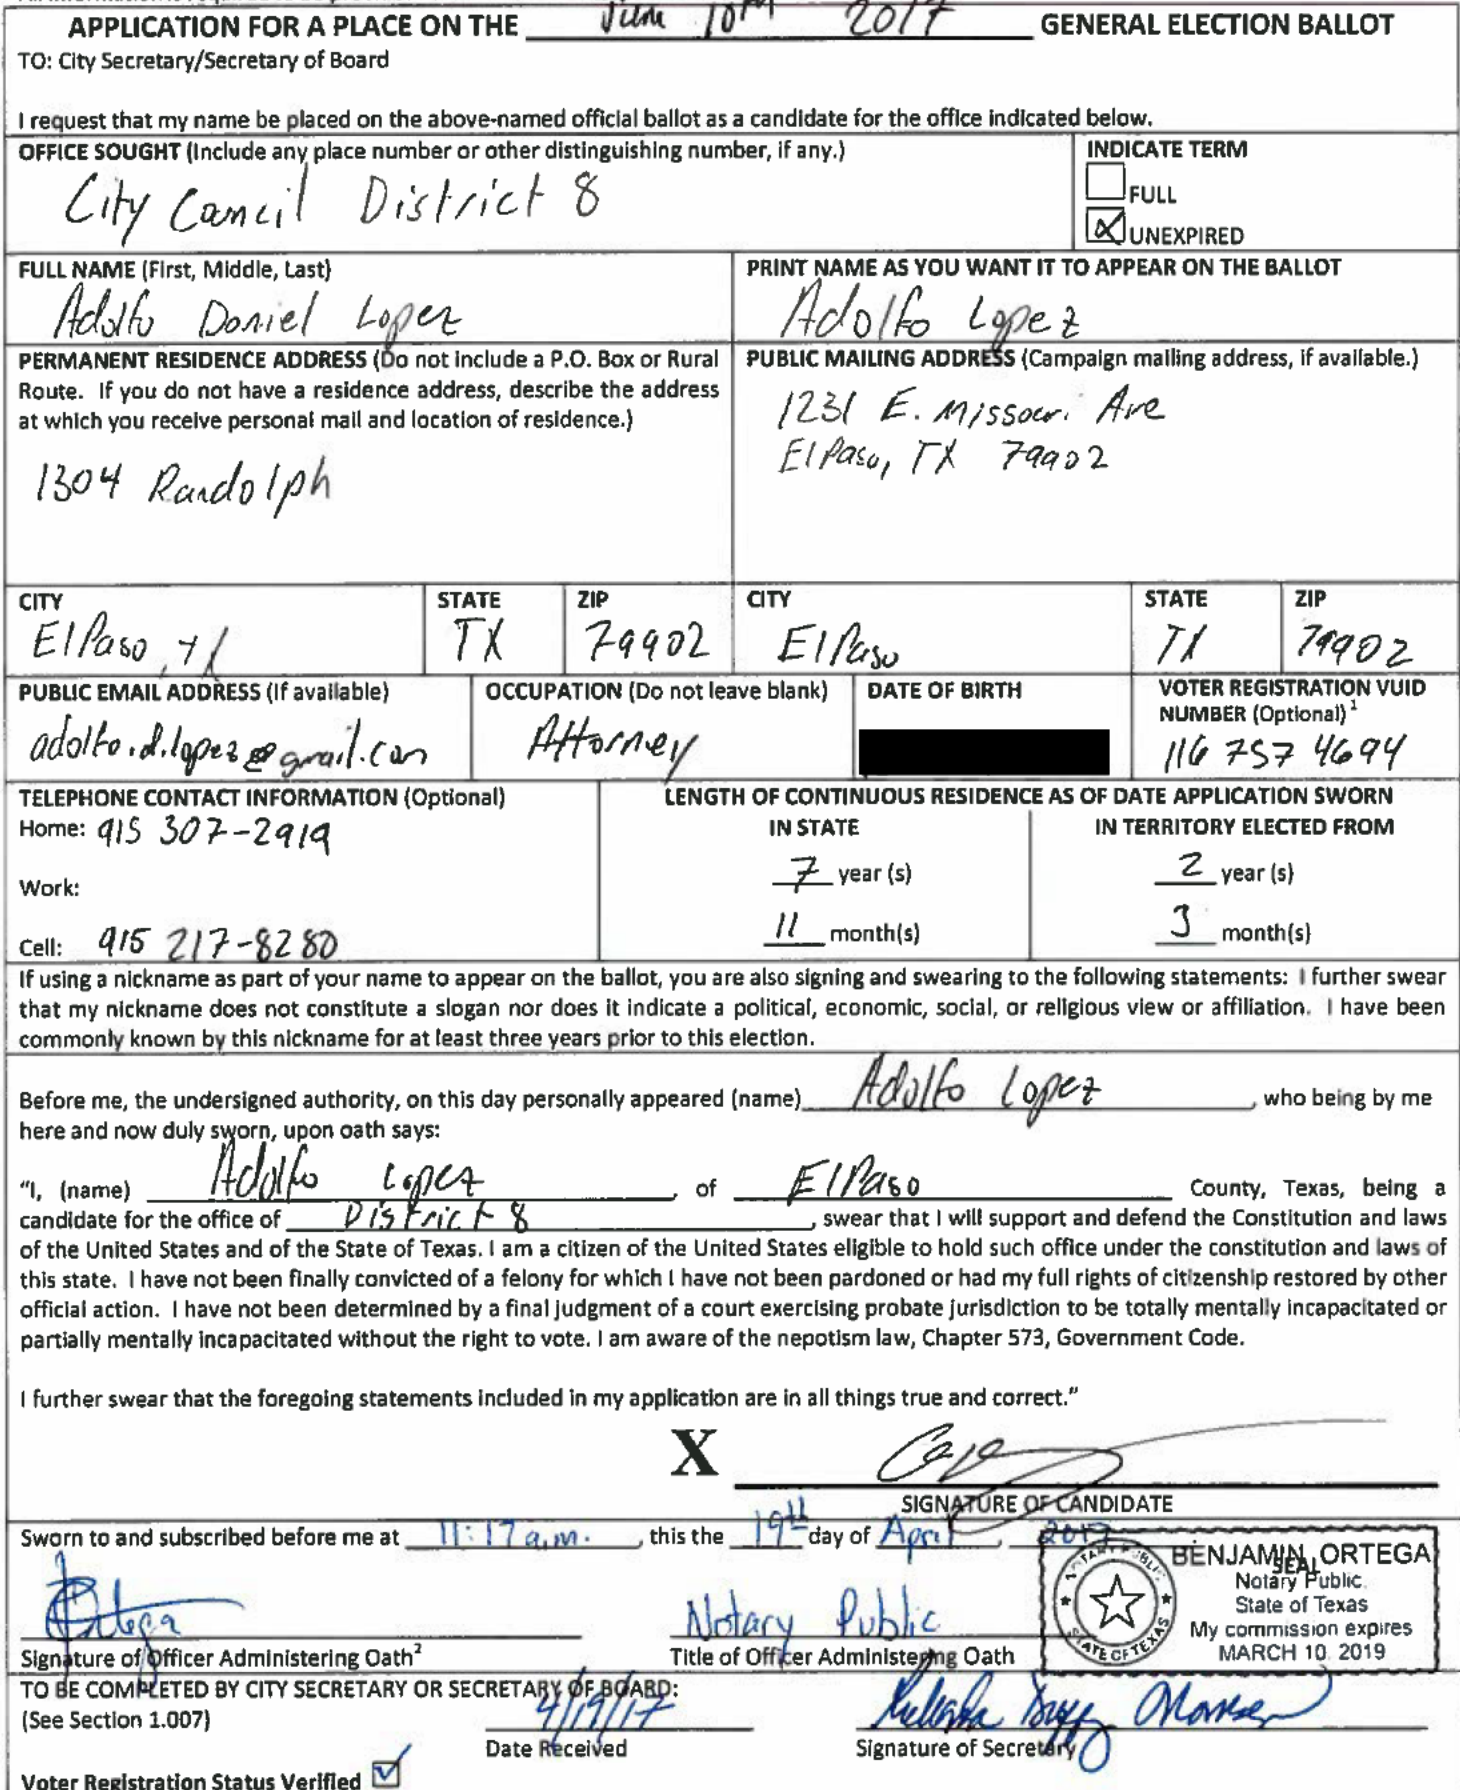 APPLICATION FOR A PLACE ON THE June 10th 2017 GENERAL ELECTION BALLOT
TO: City Secretary/Secretary of Board
I request that my name be placed on the above-named official ballot as a candidate for the office indicated below.
OFFICE SOUGHT (Include any place number or other distinguishing number, if any.)
City Council District 8
INDICATE TERM
FULL
UNEXPIRED
FULL NAME (First, Middle, Last)
Adolfo Daniel Lopez
PRINT NAME AS YOU WANT IT TO APPEAR ON THE BALLOT
Adolfo Lopez
PERMANENT RESIDENCE ADDRESS (Do not include a P.O. Box or Rural
Route. If you do not have a residence address, describe the address
at which you receive personal mail and location of residence.)
1304 Randolph
PUBLIC MAILING ADDRESS (Campaign mailing address, if available.)
1231 E. Missouri Ave
El Paso, TX 79902
CITY
El Paso, TX
STATE
TX
ZIP
79902
CITY
El Paso
STATE
TX
ZIP
79902
PUBLIC EMAIL ADDRESS (If available)
adolfo.d.lopez@gmail.com
OCCUPATION (Do not leave blank)
Attorney
DATE OF BIRTH
VOTER REGISTRATION VUID
NUMBER (Optional)¹
116 757 4694
TELEPHONE CONTACT INFORMATION (Optional)
Home: 915 307-2919
Work:
Cell: 915 217-8280
LENGTH OF CONTINUOUS RESIDENCE AS OF DATE APPLICATION SWORN
IN STATE
7 year (s)
11 month(s)
IN TERRITORY ELECTED FROM
2 year (s)
3 month(s)
If using a nickname as part of your name to appear on the ballot, you are also signing and swearing to the following statements: I further swear
that my nickname does not constitute a slogan nor does it indicate a political, economic, social, or religious view or affiliation. I have been
commonly known by this nickname for at least three years prior to this election.
Before me, the undersigned authority, on this day personally appeared (name) Adolfo Lopez, who being by me
here and now duly sworn, upon oath says:
"I, (name) Adolfo Lopez, of El Paso County, Texas, being a
candidate for the office of District 8, swear that I will support and defend the Constitution and laws
of the United States and of the State of Texas. I am a citizen of the United States eligible to hold such office under the constitution and laws of
this state. I have not been finally convicted of a felony for which I have not been pardoned or had my full rights of citizenship restored by other
official action. I have not been determined by a final judgment of a court exercising probate jurisdiction to be totally mentally incapacitated or
partially mentally incapacitated without the right to vote. I am aware of the nepotism law, Chapter 573, Government Code.
I further swear that the foregoing statements included in my application are in all things true and correct."
X
SIGNATURE OF CANDIDATE
Sworn to and subscribed before me at 11:17 a.m., this the 19th day of April, 2017
SEAL
BENJAMIN ORTEGA
Notary Public
State of Texas
My commission expires
MARCH 10, 2019
NOTARY PUBLIC
STATE OF TEXAS
Ortega
Signature of Officer Administering Oath²
Notary Public
Title of Officer Administering Oath
TO BE COMPLETED BY CITY SECRETARY OR SECRETARY OF BOARD:
(See Section 1.007)
4/19/17
Date Received
Signature of Secretary
Voter Registration Status Verified